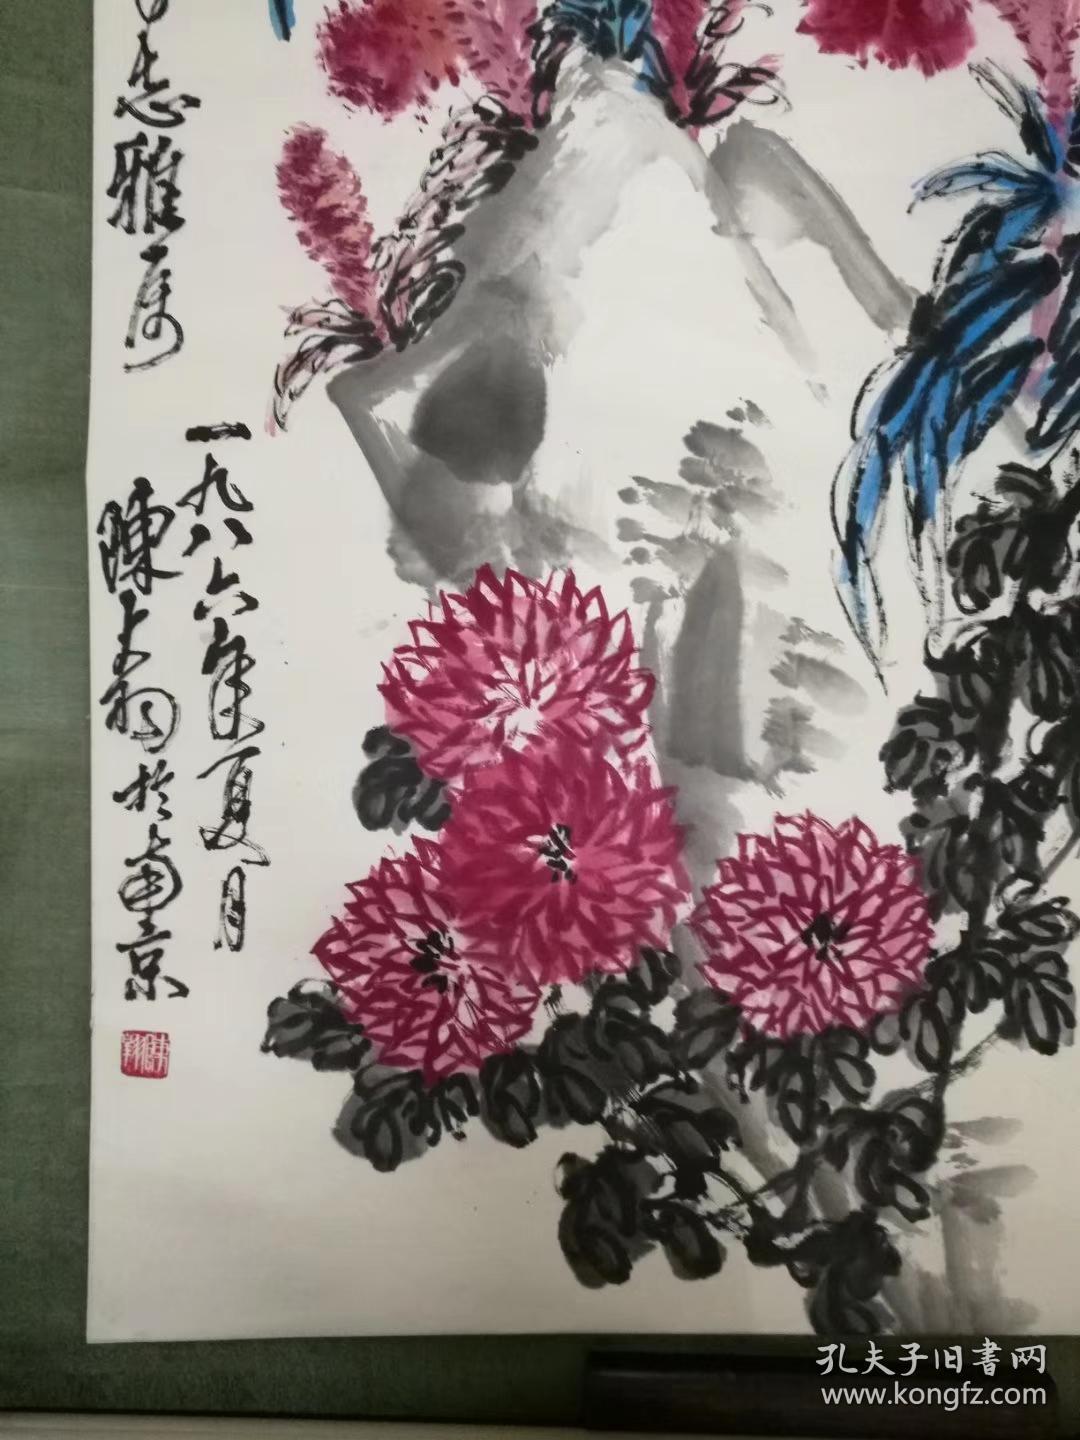 志雅属
一九八六年夏月
陈大羽於南京
孔夫子旧書网
www.kongfz.com